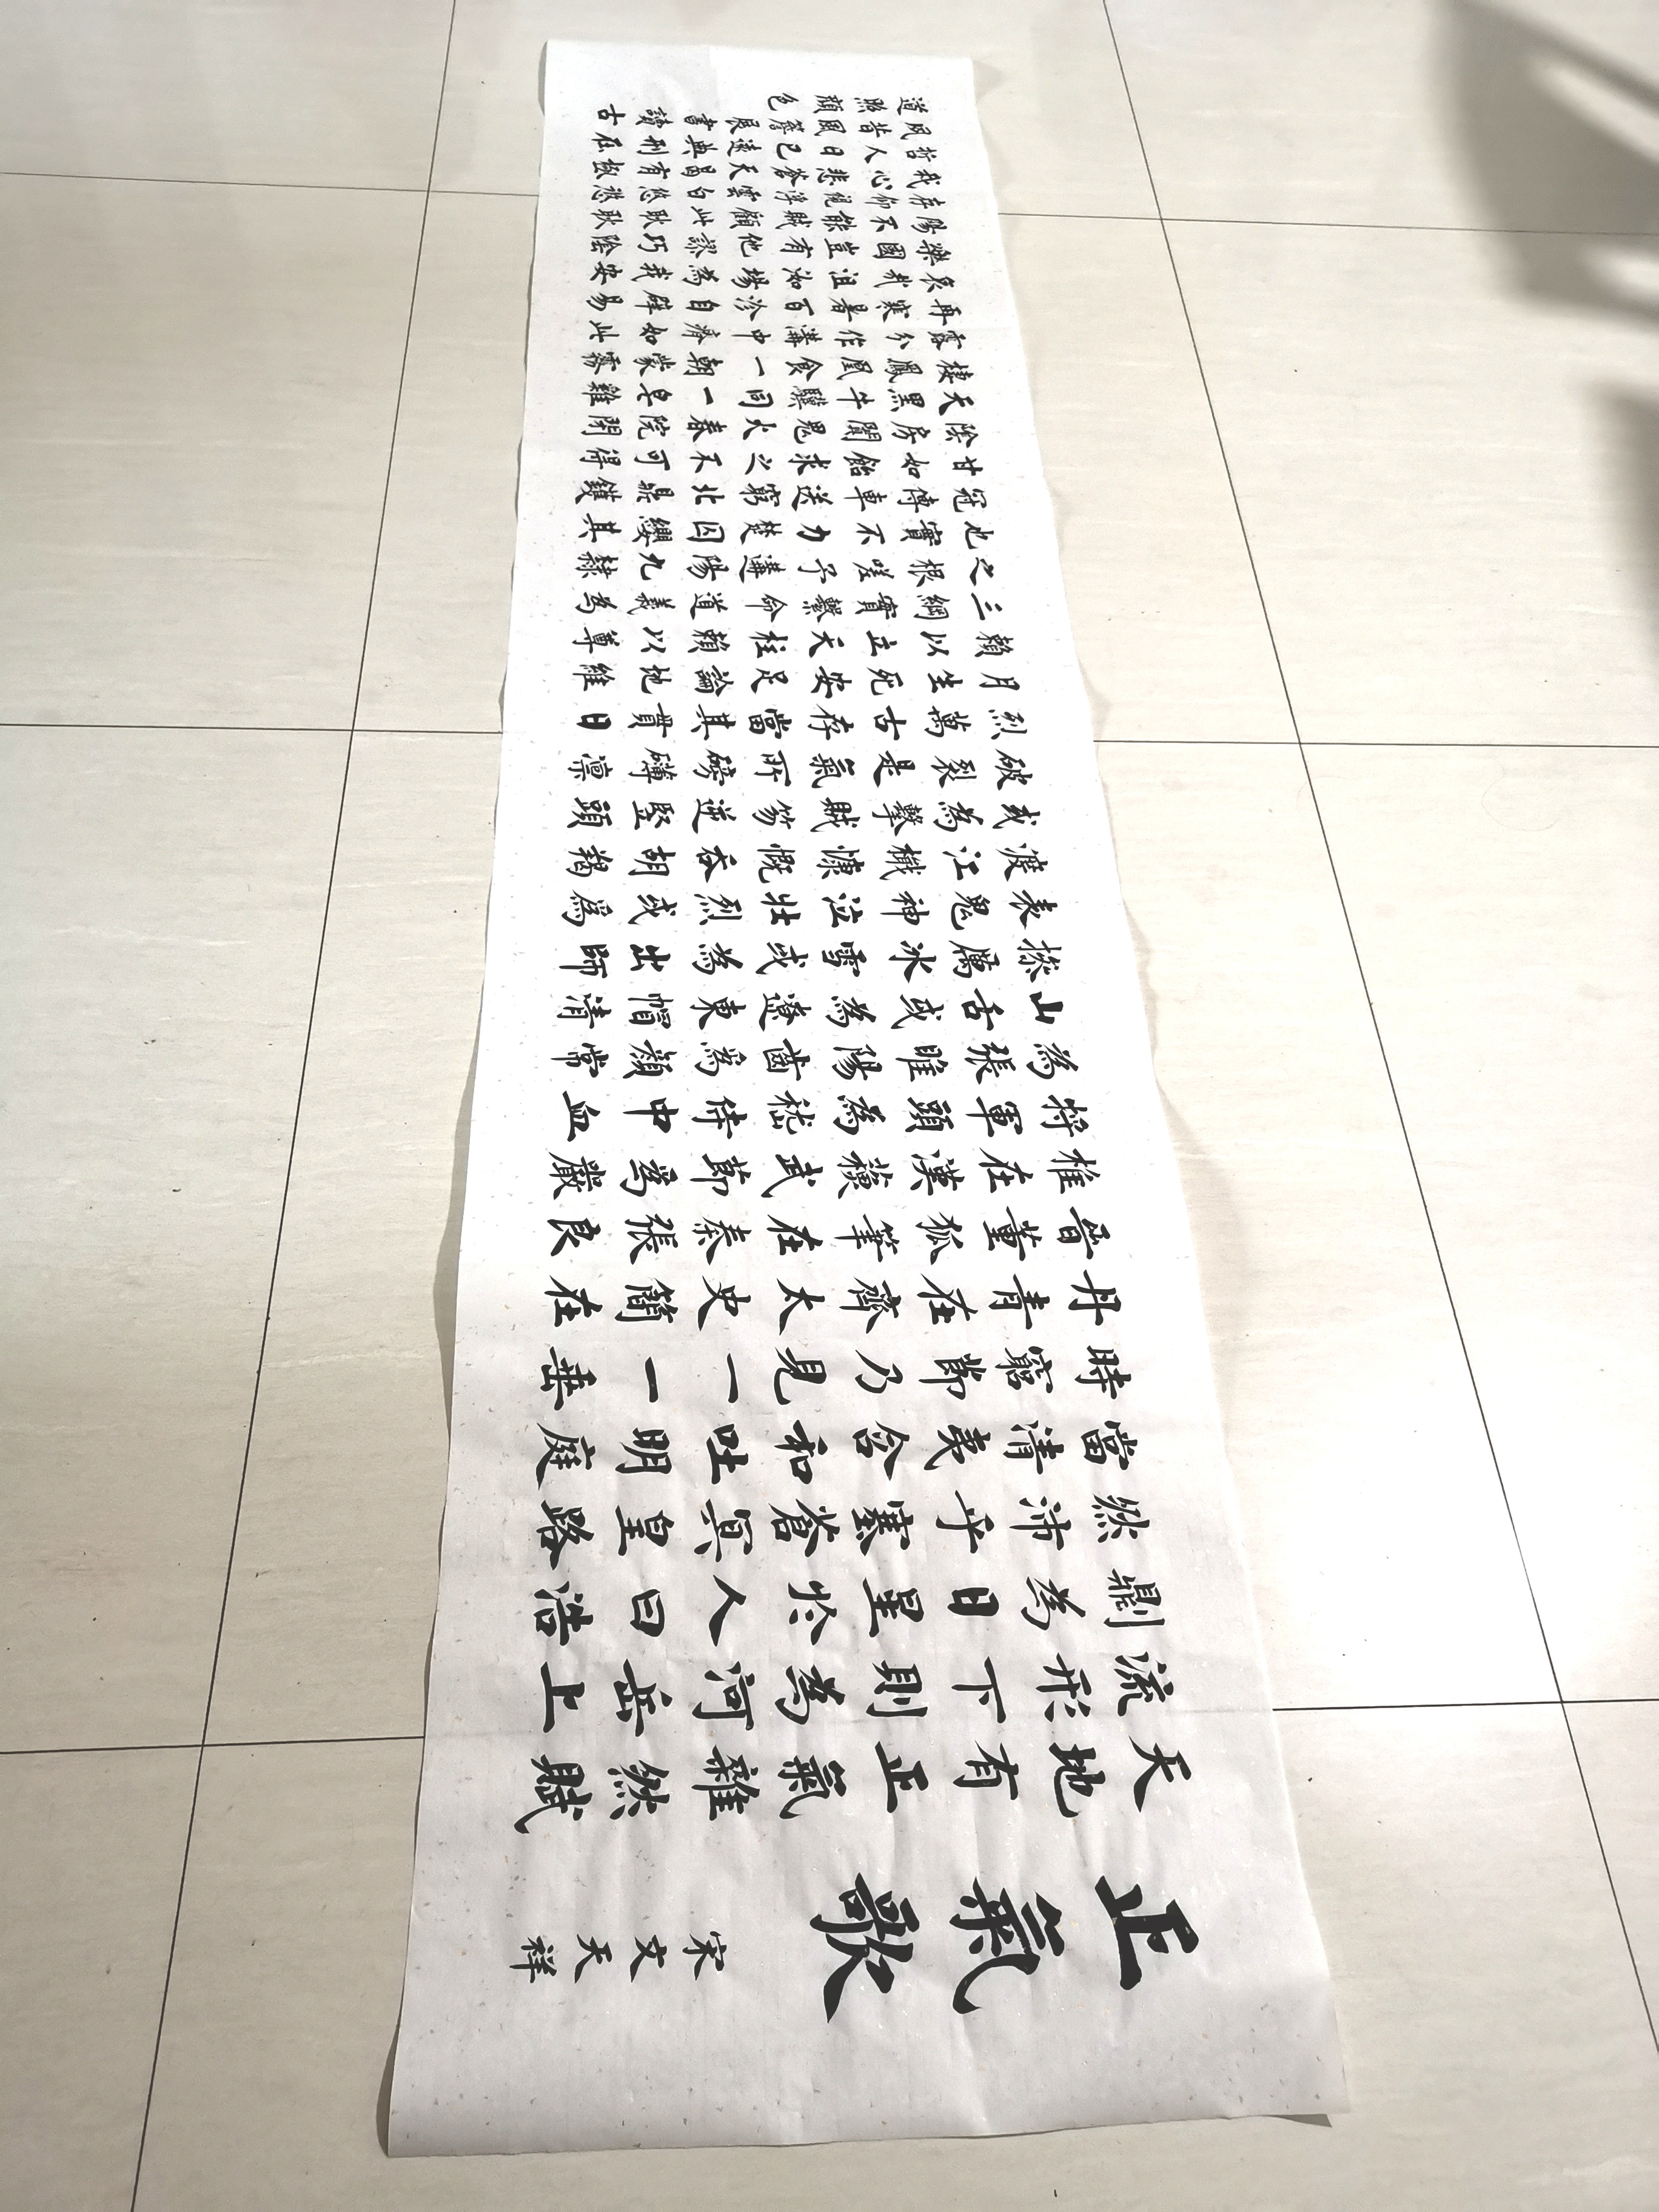 正氣歌
宋文天祥
天地有正氣雜然賦
流形下則為河岳上
則為日星於人曰浩
然沛乎塞蒼冥皇路
當清夷含和吐明庭
時窮節乃見一一垂
丹青在齊太史簡在
晉董狐筆在秦張良
椎在漢蘇武節爲嚴
將軍頭為嵇侍中血
為張睢陽齒為顏常
山舌或為遼東帽清
操厲冰雪或為出師
表鬼神泣壯烈或爲
渡江楫慷慨吞胡羯
或為擊賊笏逆豎頭
破裂是氣所磅礴凜
烈萬古存當其貫日
月生死安足論地維
賴以立天柱賴以尊
三綱實繫命道義為
之根嗟予遘陽九隸
也實不力楚囚纓其
冠傳車送窮北鼎鑊
甘如飴求之不可得
陰房闃鬼火春院閉
天黑牛驥同一皁雞
棲鳳凰食一朝蒙霧
露分作溝中瘠如此
再寒暑百沴自辟易
哀哉沮洳場為我安
樂國豈有他謬巧陰
陽不能賊顧此耿耿
存仰視浮雲白悠悠
我心悲蒼天曷有極
哲人日已遠典刑在
夙昔風簷展書讀古
道照顏色